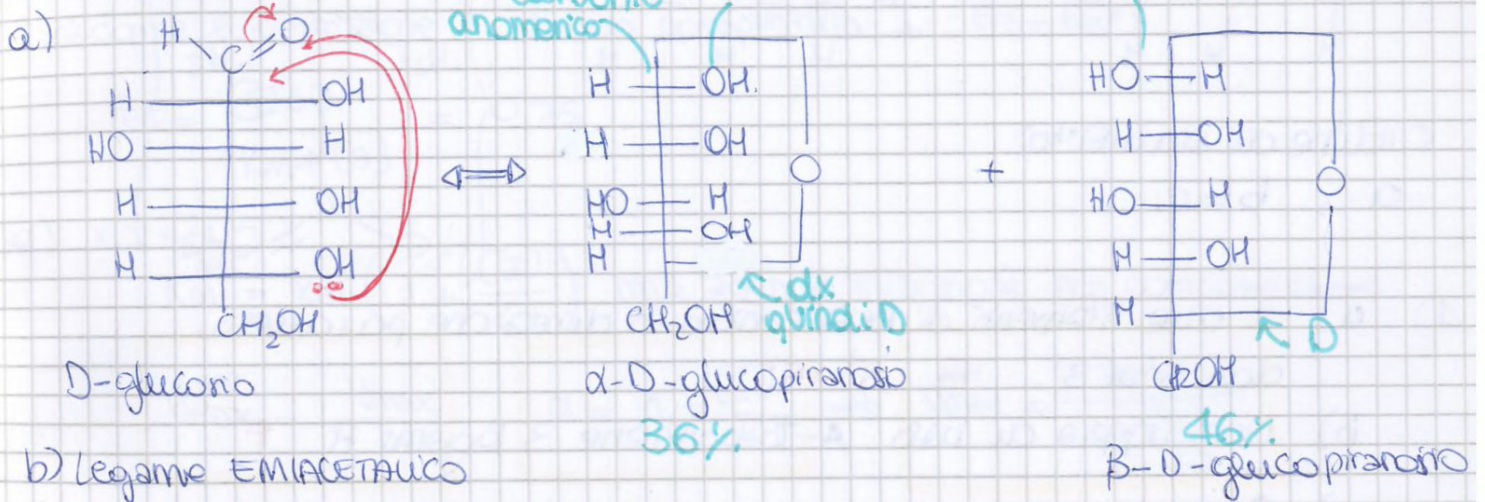 a)
H
C=O
H OH
HO H
H OH
H OH
CH₂OH
D-glucosio
anomerico
H OH.
H OH
HO H
H OH
H
O
CH₂OH
dx
quindi D
α-D-glucopiranosio
36%.
+
HO H
H OH
HO H
H OH
H
O
D
CH2OH
46%.
β-D-glucopiranosio
b) Legame EMIACETALICO